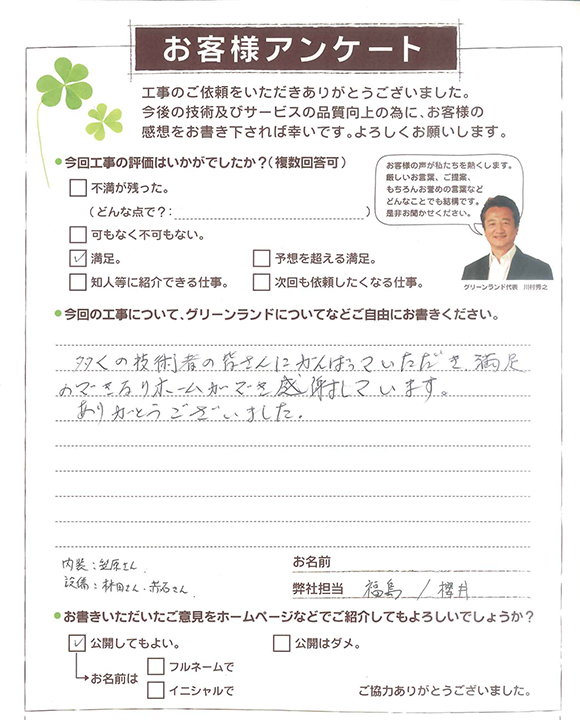 お客様アンケート
工事のご依頼をいただきありがとうございました。
今後の技術及びサービスの品質向上の為に、お客様の
感想をお書き下されば幸いです。よろしくお願いします。
今回工事の評価はいかがでしたか?(複数回答可)
不満が残った。
(どんな点で?: )
可もなく不可もない。
満足。
予想を超える満足。
知人等に紹介できる仕事。
次回も依頼したくなる仕事。
お客様の声が私たちを熱くします。
厳しいお言葉、ご提案、
もちろんお誉めの言葉など
どんなことでも結構です。
是非お聞かせください。
グリーンランド代表 川村秀之
今回の工事について、グリーンランドについてなどご自由にお書きください。
多くの技術者の皆さんにがんばっていただき、満足
のできるリホームができ感謝しています。
ありがとうございました。
内装:笠原さん
設備:林田さん・赤石さん
お名前
弊社担当 福島 / 櫻井
お書きいただいたご意見をホームページなどでご紹介してもよろしいでしょうか?
公開してもよい。
公開はダメ。
お名前は
フルネームで
イニシャルで
ご協力ありがとうございました。